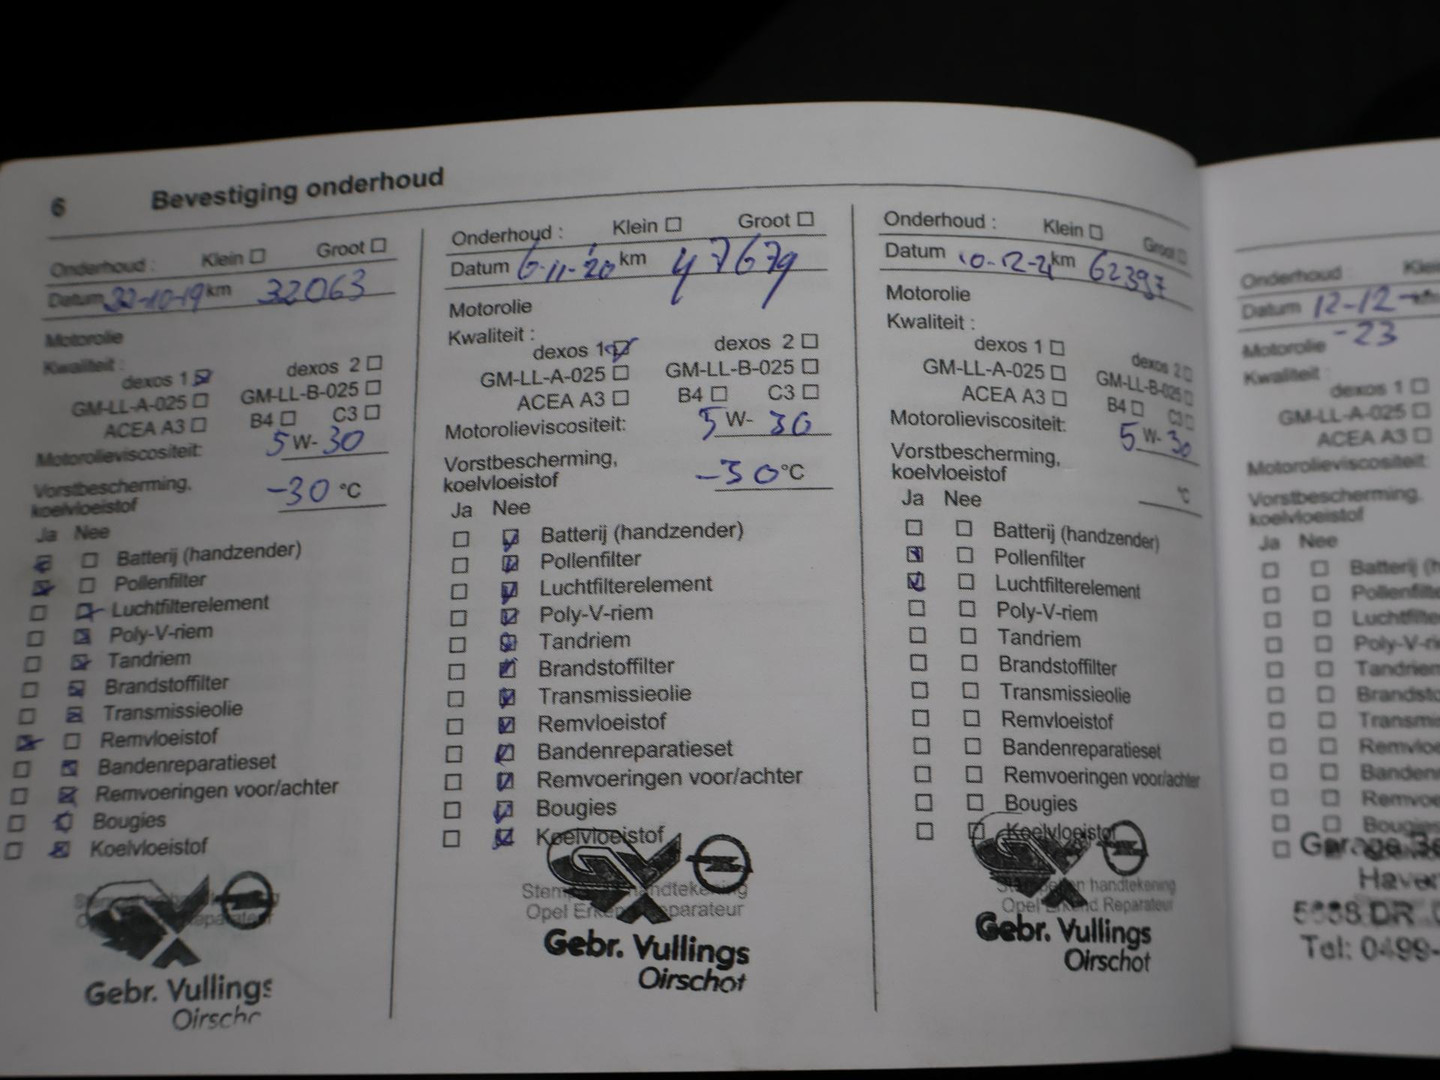 6 Bevestiging onderhoud
Onderhoud : Klein Groot
Datum km 32063
Motorolie
Kwaliteit :
dexos 1 dexos 2
GM-LL-A-025 GM-LL-B-025
ACEA A3 B4 C3
Motorolieviscositeit: 5 W- 30
Vorstbescherming,
koelvloeistof -30 °C
Ja Nee
Batterij (handzender)
Pollenfilter
Luchtfilterelement
Poly-V-riem
Tandriem
Brandstoffilter
Transmissieolie
Remvloeistof
Bandenreparatieset
Remvoeringen voor/achter
Bougies
Koelvloeistof
Gebr. Vullings
Onderhoud : Klein Groot
Datum 6-11-20 km 47679
Motorolie
Kwaliteit :
dexos 1 dexos 2
GM-LL-A-025 GM-LL-B-025
ACEA A3 B4 C3
Motorolieviscositeit: 5 W- 30
Vorstbescherming,
koelvloeistof -30 °C
Ja Nee
Batterij (handzender)
Pollenfilter
Luchtfilterelement
Poly-V-riem
Tandriem
Brandstoffilter
Transmissieolie
Remvloeistof
Bandenreparatieset
Remvoeringen voor/achter
Bougies
Koelvloeistof
handtekening
Opel Reparateur
Gebr. Vullings
Oirschot
Onderhoud : Klein Groot
Datum 10-12-21 km 62397
Motorolie
Kwaliteit :
dexos 1 dexos 2
GM-LL-A-025 GM-LL-B-025
ACEA A3 B4 C3
Motorolieviscositeit: 5 W- 30
Vorstbescherming,
koelvloeistof °C
Ja Nee
Batterij (handzender)
Pollenfilter
Luchtfilterelement
Poly-V-riem
Tandriem
Brandstoffilter
Transmissieolie
Remvloeistof
Bandenreparatieset
Remvoeringen voor/achter
Bougies
Koelvloeistof
Stempel en handtekening
Opel Erkend Reparateur
Gebr. Vullings
Oirschot
Onderhoud :
Datum 12-12-
-23
Motorolie
Kwaliteit :
dexos 1
GM-LL-A-025
ACEA A3
Motorolieviscositeit:
Vorstbescherming,
koelvloeistof
Ja Nee
Garage
Tel: 0499-